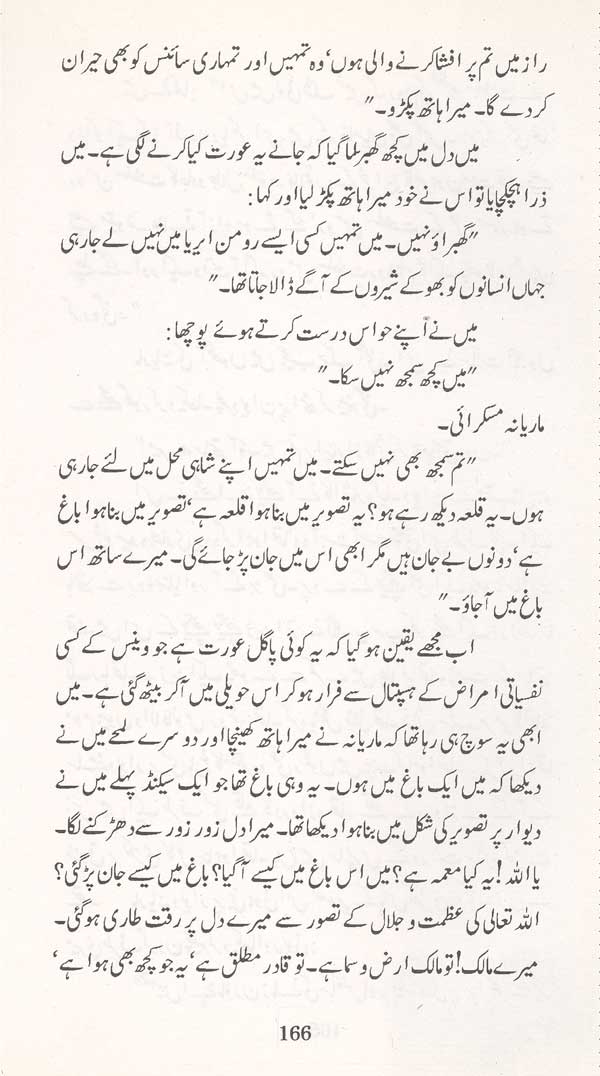 راز میں تم پر افشا کرنے والی ہوں‘ وہ تمہیں اور تمہاری سائنس کو بھی حیران
کر دے گا۔ میرا ہاتھ پکڑو۔"
میں دل میں کچھ گھبرا سا گیا کہ جانے یہ عورت کیا کرنے لگی ہے۔ میں
ذرا ہچکچایا تو اس نے خود میرا ہاتھ پکڑ لیا اور کہا:
"گھبراؤ نہیں۔ میں تمہیں کسی ایسے رومن ایریا میں نہیں لے جا رہی
جہاں انسانوں کو بھوکے شیروں کے آگے ڈالا جاتا تھا۔"
میں نے اپنے حواس درست کرتے ہوئے پوچھا:
"میں کچھ سمجھ نہیں سکا۔"
ماریانہ مسکرائی۔
"تم سمجھ بھی نہیں سکتے۔ میں تمہیں اپنے شاہی محل میں لئے جا رہی
ہوں۔ یہ قلعہ دیکھ رہے ہو؟ یہ تصویر میں بنا ہوا قلعہ ہے‘ تصویر میں بنا ہوا باغ
ہے‘ دونوں بے جان ہیں مگر ابھی اس میں جان پڑ جائے گی۔ میرے ساتھ اس
باغ میں آ جاؤ۔"
اب مجھے یقین ہو گیا کہ یہ کوئی پاگل عورت ہے جو وینس کے کسی
نفسیاتی امراض کے ہسپتال سے فرار ہو کر اس حویلی میں آ کر بیٹھ گئی ہے۔ میں
ابھی یہ سوچ ہی رہا تھا کہ ماریانہ نے میرا ہاتھ کھینچا اور دوسرے لمحے میں نے
دیکھا کہ میں ایک باغ میں ہوں۔ یہ وہی باغ تھا جو ایک سیکنڈ پہلے میں نے
دیوار پر تصویر کی شکل میں بنا ہوا دیکھا تھا۔ میرا دل زور زور سے دھڑکنے لگا۔
یا اللہ! یہ کیا معمہ ہے؟ میں اس باغ میں کیسے آ گیا؟ باغ میں کیسے جان پڑ گئی؟
اللہ تعالی کی عظمت و جلال کے تصور سے میرے دل پر رقت طاری ہو گئی۔
میرے مالک! تو مالک ارض و سما ہے۔ تو قادر مطلق ہے‘ یہ جو کچھ بھی ہوا ہے‘
166